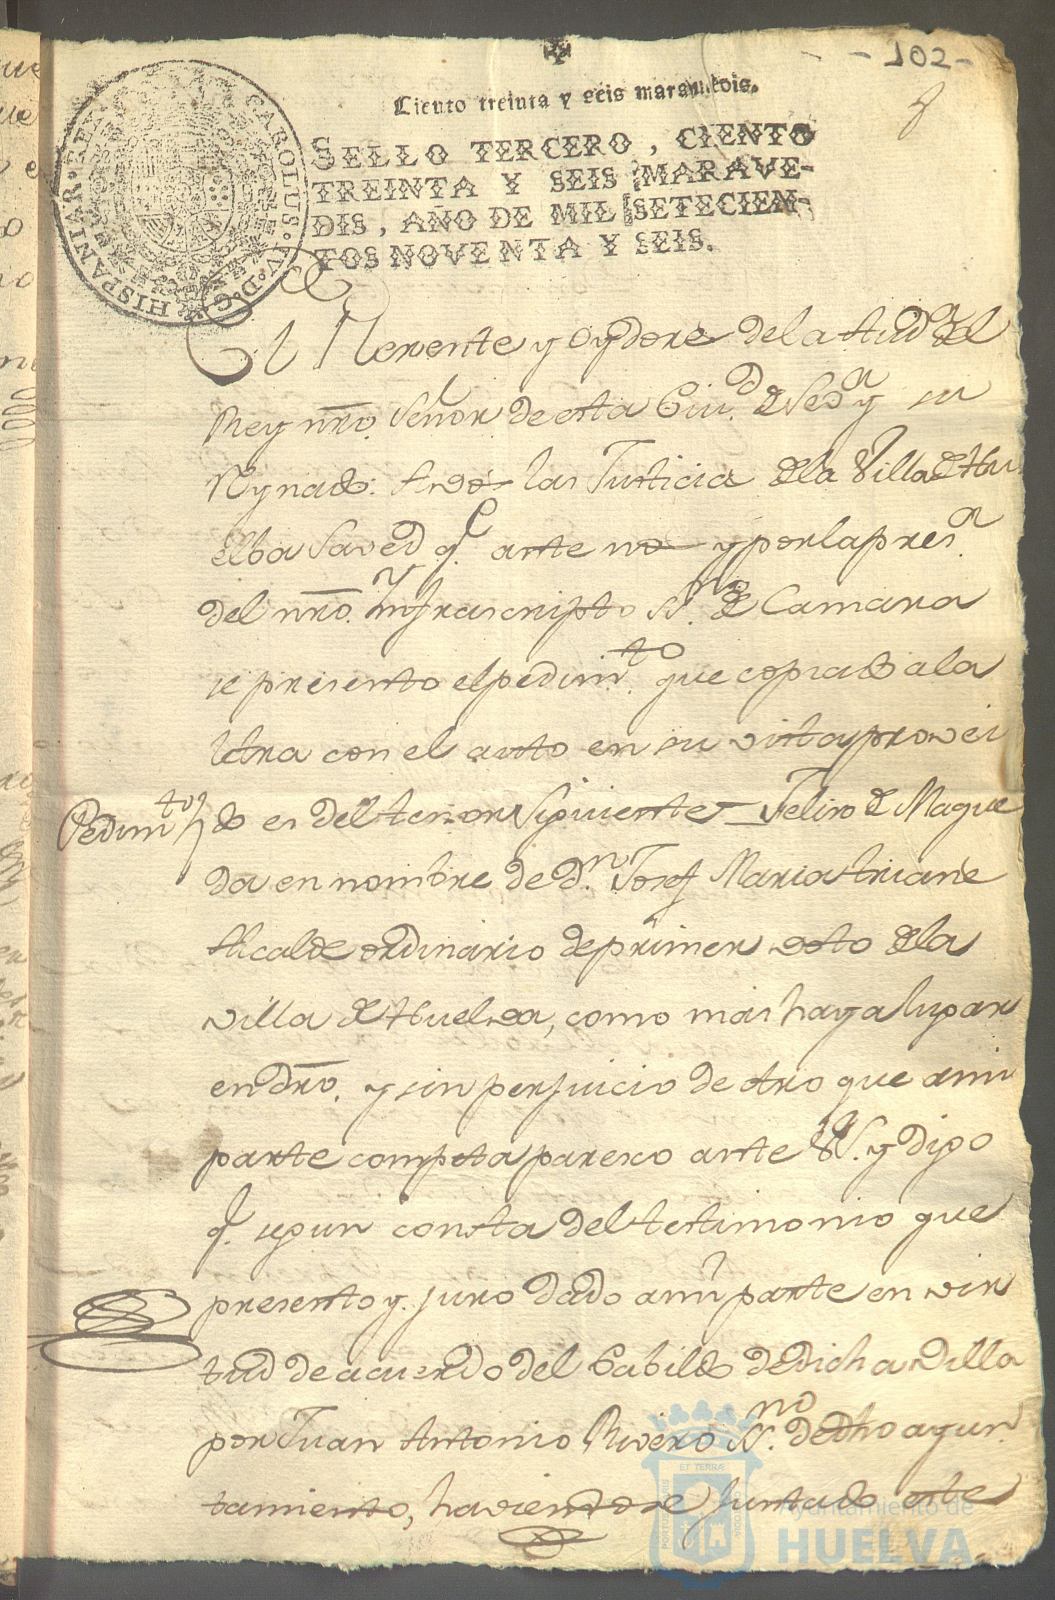 -102-
Ciento treinta y seis maravedis.
SELLO TERCERO, CIENTO
TREINTA Y SEIS MARAVE-
DIS, AÑO DE MIL SETECIEN-
TOS NOVENTA Y SEIS.
CAROLUS·IV·D·G·HISPANIAR·REX
El Rexente y Oydores de la Aud.ª del
Rey nro. Señor de esta Ciud. de Sev.ª y su
Reynado: A vos las Justicias de la Villa de Hu
elba Saved q.e ante nos y por la pres.ª
del nro. Infrascripto Ss.no de Camara
se presento el pedim.to que copiado a la
letra con el auto en su vista provei
Pedim.to do es del tenor siguiente = Felix de Mague
da en nombre de d.n Josef Maria Triane
Alcalde ordinario de primer voto de la
villa de Huelva, como mas haya lugar
en dro. y sin perjuicio de otro que a mi
parte competa paresco ante V.S. y digo
q. segun consta del testimonio que
presento y juro dado a mi parte en vir
tud de acuerdo del Cabildo de dicha villa
por Juan Antonio Rivero Ss.no de dho ayun
tamiento, haviendose juntado este
ET TERRÆ
Ayuntamiento de
HUELVA